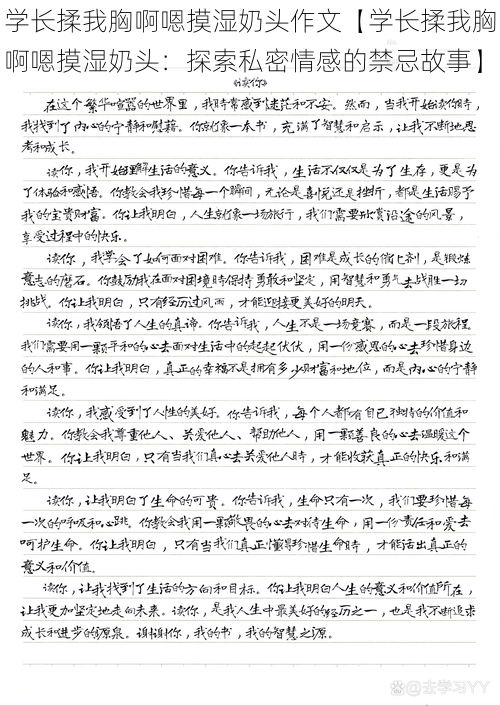 学长揉我胸啊嗯摸湿奶头作文【学长揉我胸
啊嗯摸湿奶头：探索私密情感的禁忌故事】
《读你》
在这个繁华喧嚣的世界里，我时常感到迷茫和不安。然而，当我开始读你时，
我找到了内心的宁静和慰藉。你就像一本书，充满了智慧和启示，让我不断地思
考和成长。
读你，我开始理解生活的意义。你告诉我，生活不仅仅是为了生存，更是为
了体验和感悟。你教会我珍惜每一个瞬间，无论是喜悦还是挫折，都是生活赐予
我的宝贵财富。你让我明白，人生就像一场旅行，我们需要欣赏沿途的风景，
享受过程中的快乐。
读你，我学会了如何面对困难。你告诉我，困难是成长的催化剂，是锻炼
意志的磨石。你鼓励我在面对困境时保持勇敢和坚定，用智慧和勇气去战胜一切
挑战。你让我明白，只有经历过风雨，才能迎接更美好的明天。
读你，我领悟了人生的真谛。你告诉我，人生不是一场竞赛，而是一段旅程。
我们需要用一颗平和的心去面对生活中的起起伏伏，用一份感恩的心去珍惜身边
的人和事。你让我明白，真正的幸福不是拥有多少财富和地位，而是内心的宁静
和满足。
读你，我感受到了人性的美好。你告诉我，每个人都有自己独特的价值和
魅力。你教会我尊重他人、关爱他人、帮助他人，用一颗善良的心去温暖这个
世界。你让我明白，只有当我们真心去关爱他人时，才能收获真正的快乐和满
足。
读你，让我明白了生命的可贵。你告诉我，生命只有一次，我们要珍惜每
一次的呼吸和心跳。你教会我用一颗敬畏的心去对待生命，用一份责任和爱去
呵护生命。你让我明白，只有当我们真正懂得珍惜生命时，才能活出真正的
意义和价值。
读你，让我找到了生活的方向和目标。你让我明白人生的意义和价值所在，
让我更加坚定地走向未来。读你，是我人生中最美好的经历之一，也是我不断追求
成长和进步的源泉。谢谢你，我的书，我的智慧之源。
@去学习YY